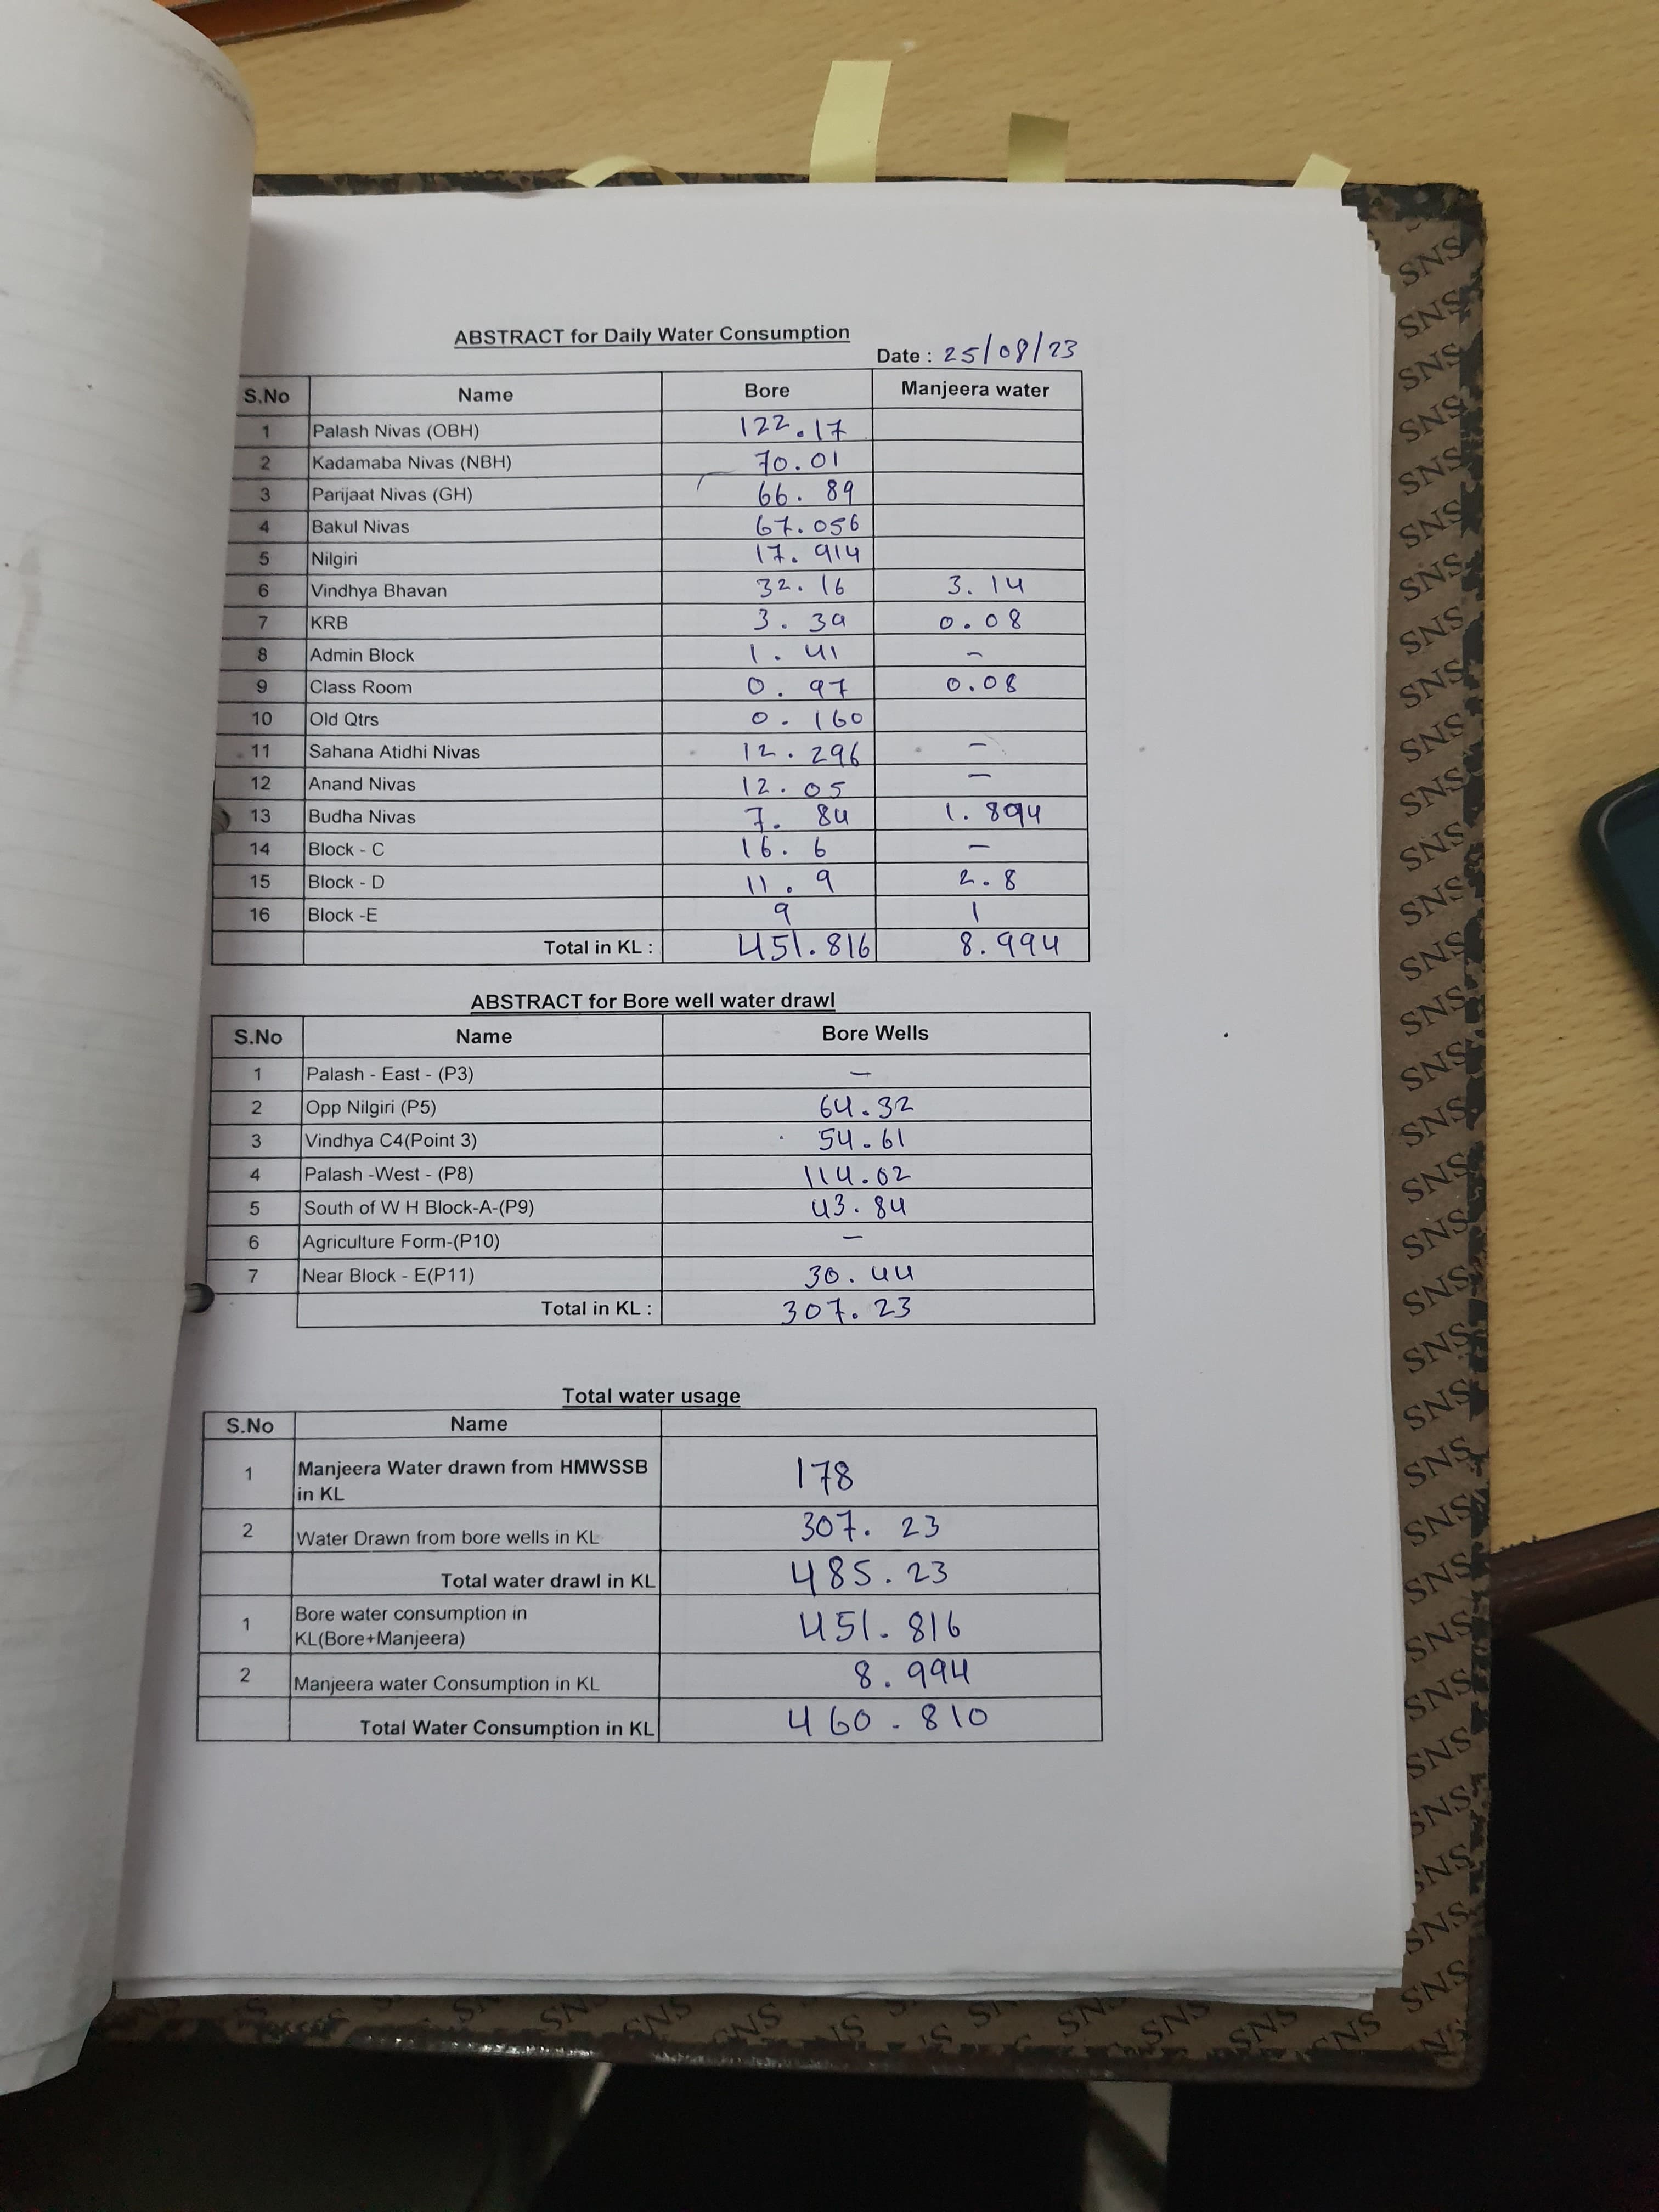 ABSTRACT for Daily Water Consumption
Date : 25/08/23
S.No Name Bore Manjeera water
1 Palash Nivas (OBH) 122.17
2 Kadamaba Nivas (NBH) 70.01
3 Parijaat Nivas (GH) 66.89
4 Bakul Nivas 67.056
5 Nilgiri 17.914
6 Vindhya Bhavan 32.16 3.14
7 KRB 3.39 0.08
8 Admin Block 1.41 -
9 Class Room 0.97 0.08
10 Old Qtrs 0.160
11 Sahana Atidhi Nivas 12.296 -
12 Anand Nivas 12.05 -
13 Budha Nivas 7.84 1.894
14 Block - C 16.6 -
15 Block - D 11.9 2.8
16 Block -E 9 1
Total in KL : 451.816 8.994
ABSTRACT for Bore well water drawl
S.No Name Bore Wells
1 Palash - East - (P3) -
2 Opp Nilgiri (P5) 64.32
3 Vindhya C4(Point 3) 54.61
4 Palash -West - (P8) 114.02
5 South of W H Block-A-(P9) 43.84
6 Agriculture Form-(P10) -
7 Near Block - E(P11) 30.44
Total in KL : 307.23
Total water usage
S.No Name
1 Manjeera Water drawn from HMWSSB
in KL 178
2 Water Drawn from bore wells in KL 307.23
Total water drawl in KL 485.23
1 Bore water consumption in
KL(Bore+Manjeera) 451.816
2 Manjeera water Consumption in KL 8.994
Total Water Consumption in KL 460.810
SNS